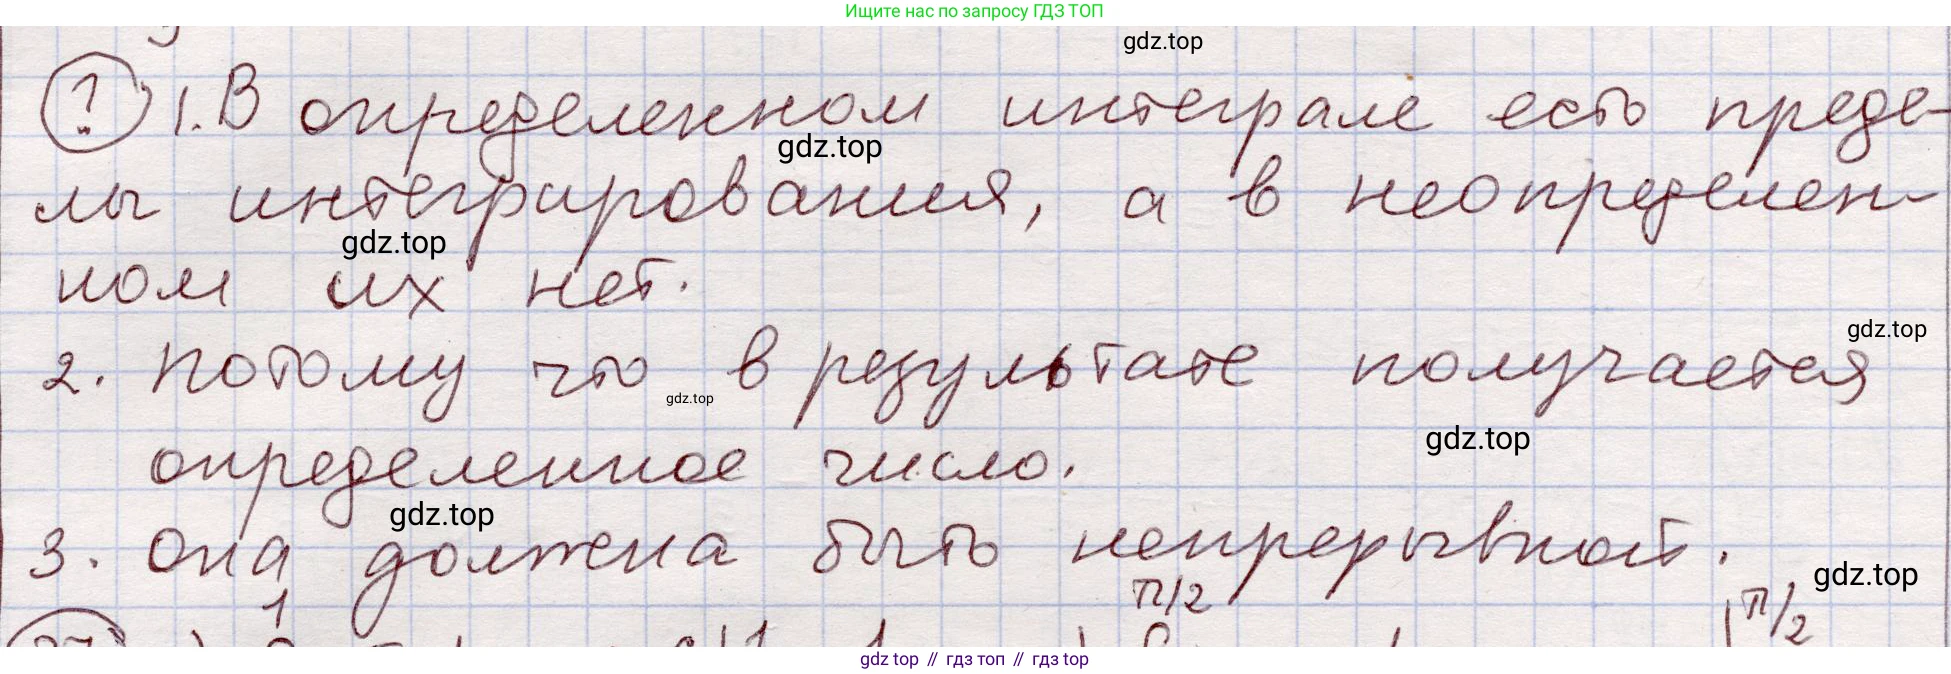 Ищите нас по запросу ГДЗ ТОП
gdz.top
? 1. В определенном интеграле есть преде-
gdz.top
лы интегрирования, а в неопределен-
gdz.top
ном их нет.
gdz.top
2. Потому что в результате получается
gdz.top
gdz.top
определенное число.
gdz.top
3. Она должна быть непрерывной.
gdz.top
1 π/2 π/2
gdz top // гдз топ // gdz top